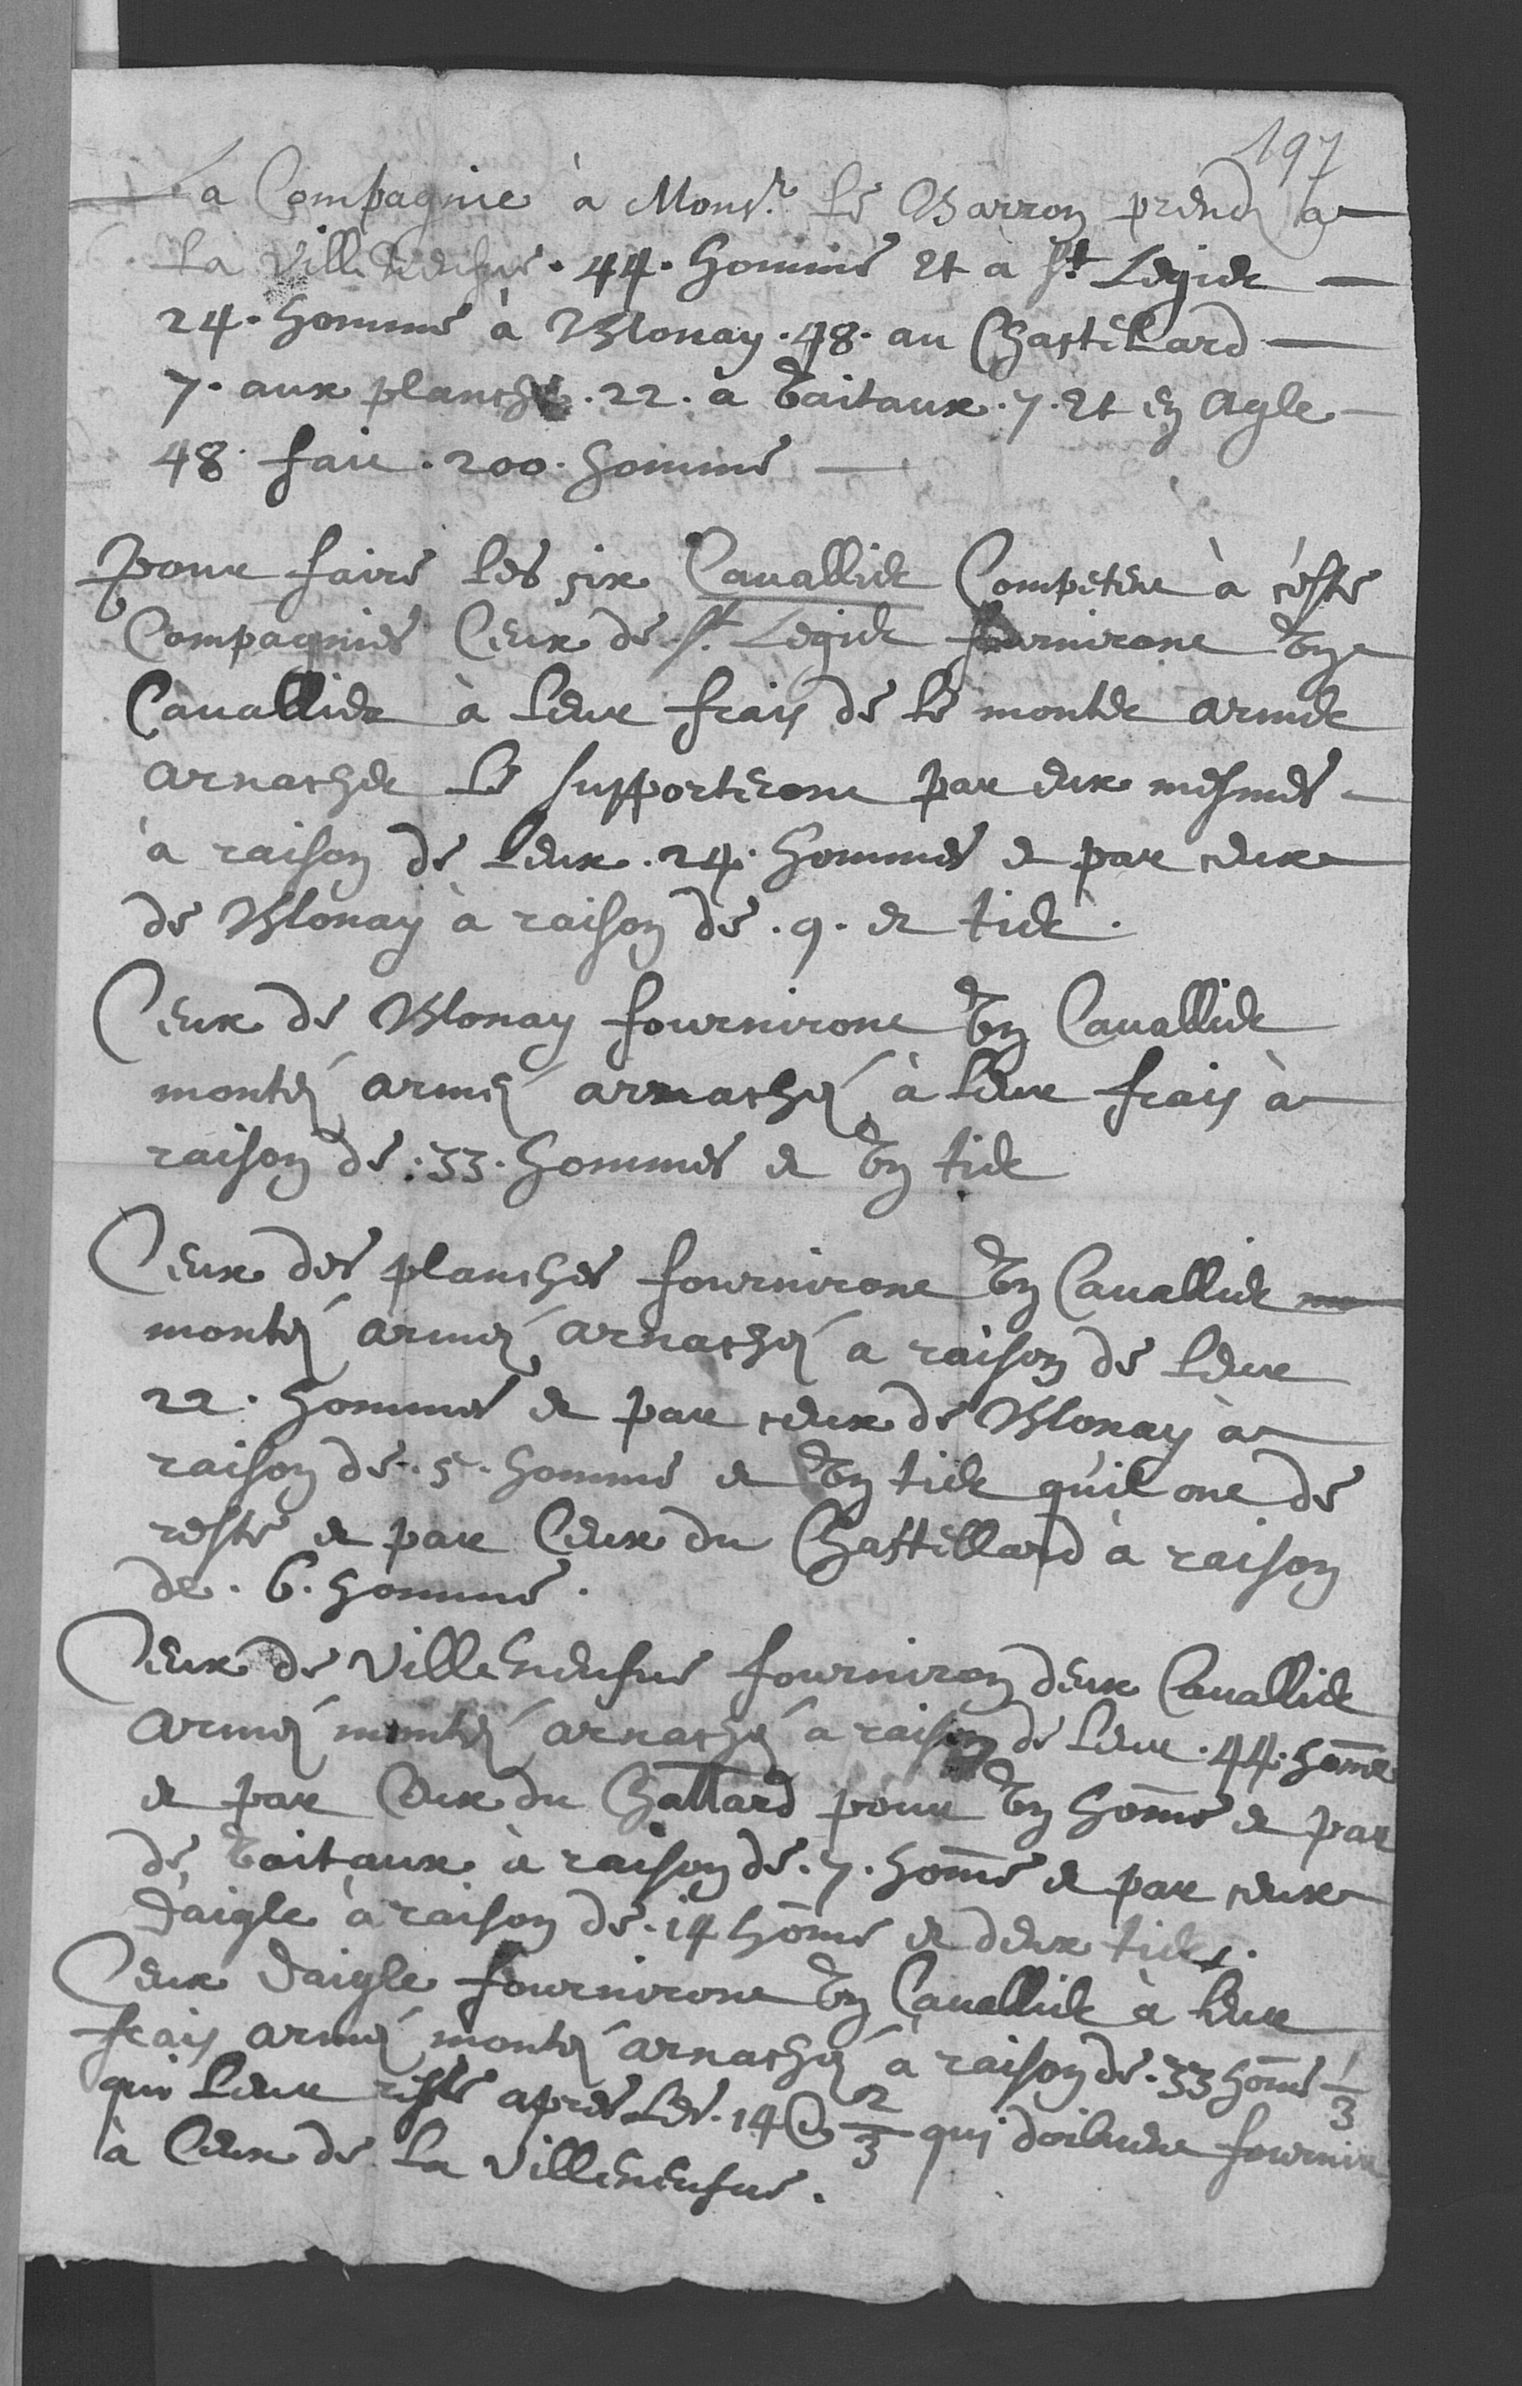 197
La Compagnie à Mons.r le Barron prend a
la Villeneufue . 44 . homme Et a St Legier
24 . homme à Blonay . 48 . au Chastellard
7 . aux planche . 22 . a Vaitaux . 7 . Et en Agle
48 fait . 200 . homme
pour faire les six Cauallier Competent à ceste
Compagnies Ceux de St. Legier fourniront un
Cauallier à leur frais de le monter armer
arnacher le supporteront par eux mesmes
à raison de leur . 24 . hommes et par ceux
de Blonay à raison de . 9 . et tier .
Ceux de Blonay fourniront un Cauallier
monté armé arnaché à leur frais à
raison de . 33 . hommes et un tier
Ceux des planches fourniront un Cauallier
monté armé arnaché a raison de leur
22 . hommes et par ceux de Blonay à
raison de . 5 . homme et un tier quil ont de
reste et par Ceux du Chastellard à raison
de . 6 . homme .
Ceux de Villeneufue fourniron deux Cauallier
armé monté arnaché a raison de leur . 44 . home
et par Ceux du Chattard pour un home et par
de Vaitaux à raison de . 7 . home et par ceux
daigle à raison de . 14 home et deux tiers .
Ceux daigle fourniront un Cauallier à leur
frais armé monté arnaché à raison de . 33 home 1/3
qui leur reste apres les . 14 & 2/3 qui doibuent fournir
à Ceux de la Villeneufue .